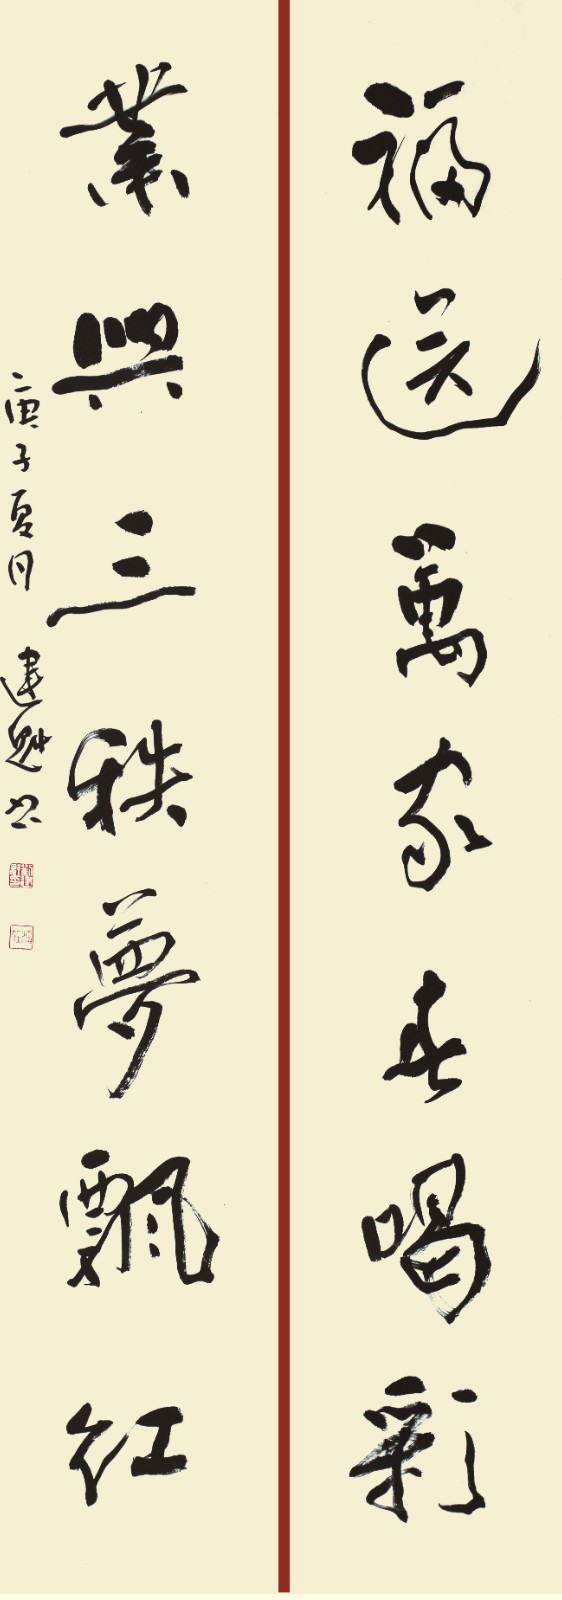 福送萬家春喝彩
業興三秩夢飄紅
庚子夏月 建魁书